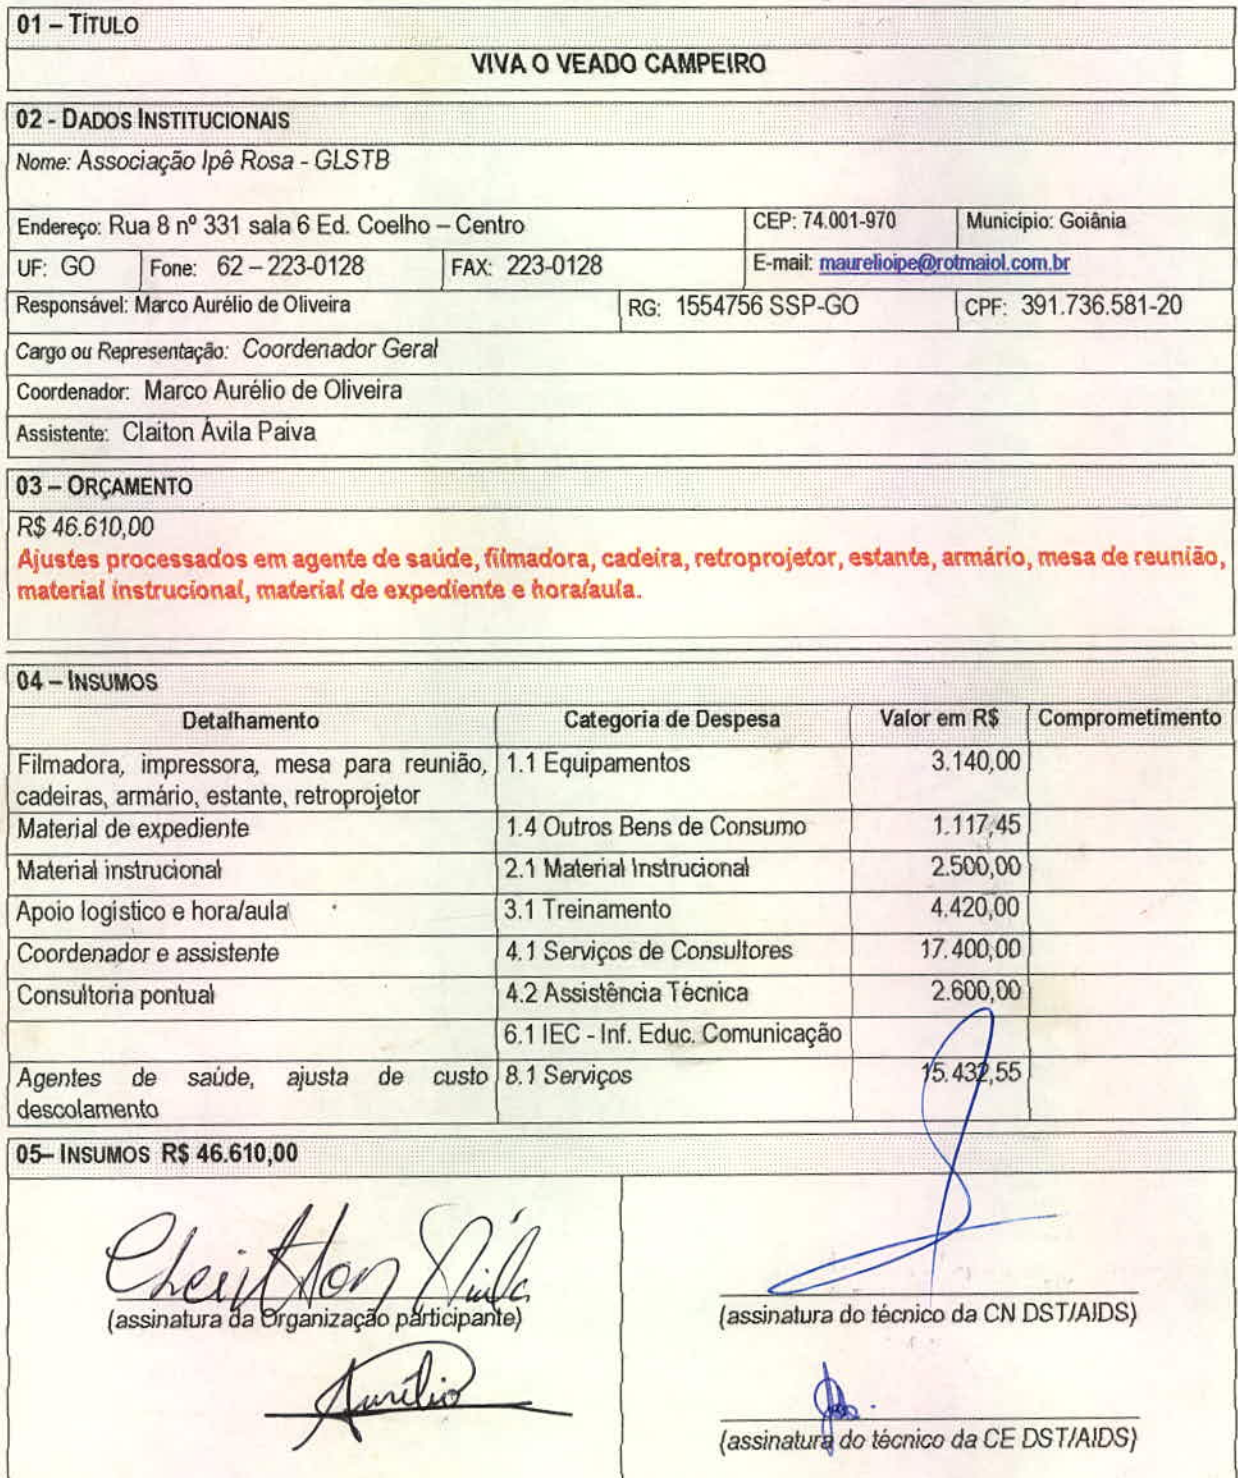 01 – TÍTULO
VIVA O VEADO CAMPEIRO
02 - DADOS INSTITUCIONAIS
Nome: Associação Ipê Rosa - GLSTB
Endereço: Rua 8 nº 331 sala 6 Ed. Coelho – Centro CEP: 74.001-970 Município: Goiânia
UF: GO Fone: 62 – 223-0128 FAX: 223-0128 E-mail: maurelioipe@rotmaiol.com.br
Responsável: Marco Aurélio de Oliveira RG: 1554756 SSP-GO CPF: 391.736.581-20
Cargo ou Representação: Coordenador Geral
Coordenador: Marco Aurélio de Oliveira
Assistente: Claiton Ávila Paiva
03 – ORÇAMENTO
R$ 46.610,00
Ajustes processados em agente de saúde, filmadora, cadeira, retroprojetor, estante, armário, mesa de reunião,
material instrucional, material de expediente e hora/aula.
04 – INSUMOS
Detalhamento Categoria de Despesa Valor em R$ Comprometimento
Filmadora, impressora, mesa para reunião, 1.1 Equipamentos 3.140,00
cadeiras, armário, estante, retroprojetor
Material de expediente 1.4 Outros Bens de Consumo 1.117,45
Material instrucional 2.1 Material Instrucional 2.500,00
Apoio logistico e hora/aula 3.1 Treinamento 4.420,00
Coordenador e assistente 4.1 Serviços de Consultores 17.400,00
Consultoria pontual 4.2 Assistência Técnica 2.600,00
6.1 IEC - Inf. Educ. Comunicação
Agentes de saúde, ajusta de custo 8.1 Serviços 15.432,55
descolamento
05– INSUMOS R$ 46.610,00
(assinatura da Organização participante)
(assinatura do técnico da CN DST/AIDS)
Aurélio
(assinatura do técnico da CE DST/AIDS)